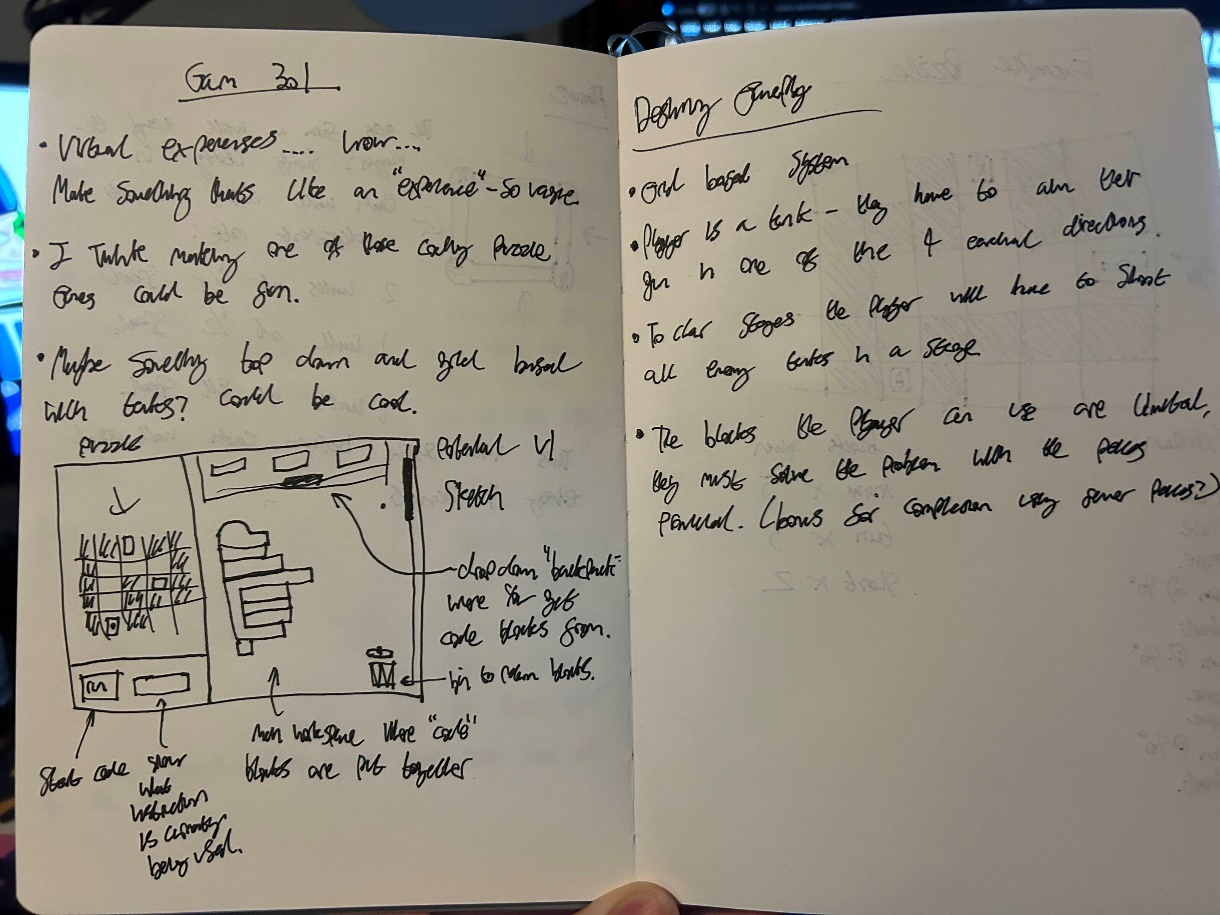 Gam 301
• Virtual experenses.... wow...
Make something thats like an "experence" - so vague.
• I think making one of those coding puzzle
games could be fun.
• Maybe something top down and grid based
with tanks? could be cool.
puzzle
Potential UI
Sketch
drop down "backpack"
were you get
code blocks from.
bin to return blocks.
run
main workspace where "code"
blocks are put together
Start code
show
what
instruction
is currently
being used.
Designing Gameplay
• Grid based system
• Player is a tank - they have to aim their
gun in one of the 4 cardinal directions.
• To clear stages the player will have to shoot
all enemy tanks in a stage
• The blocks the player can use are limited,
they must solve the problem with the pieces
provided. (bonus for completion using fewer pieces?)